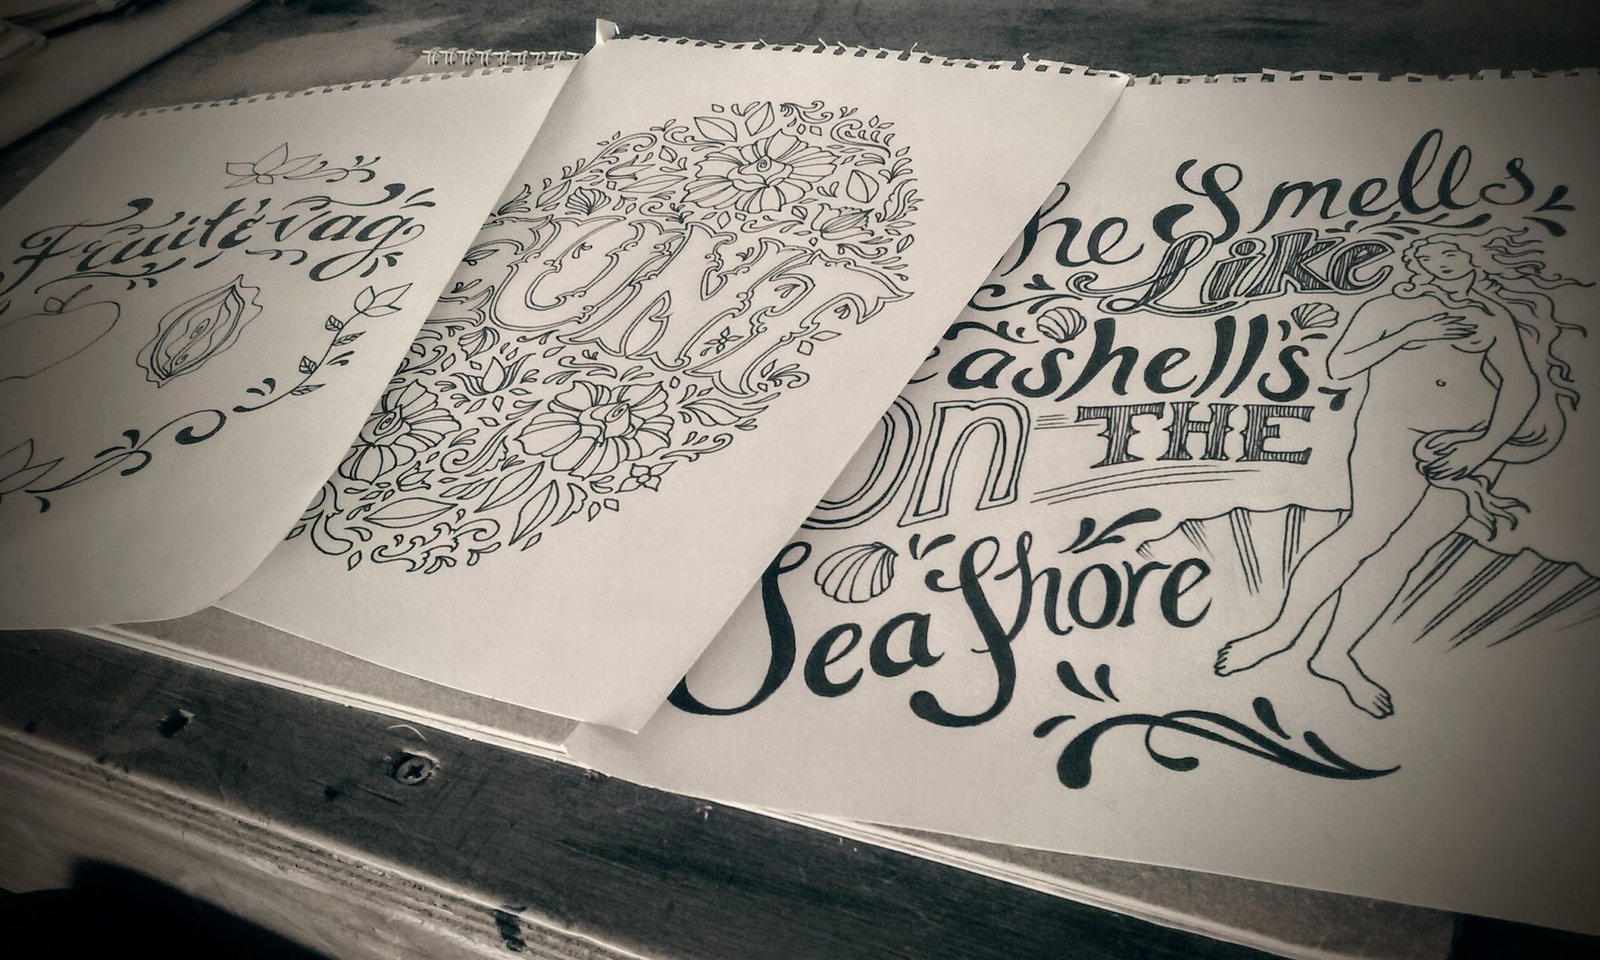 Fruité Vag
UNT
he Smells
Like
eashell's
On THE
Sea Shore